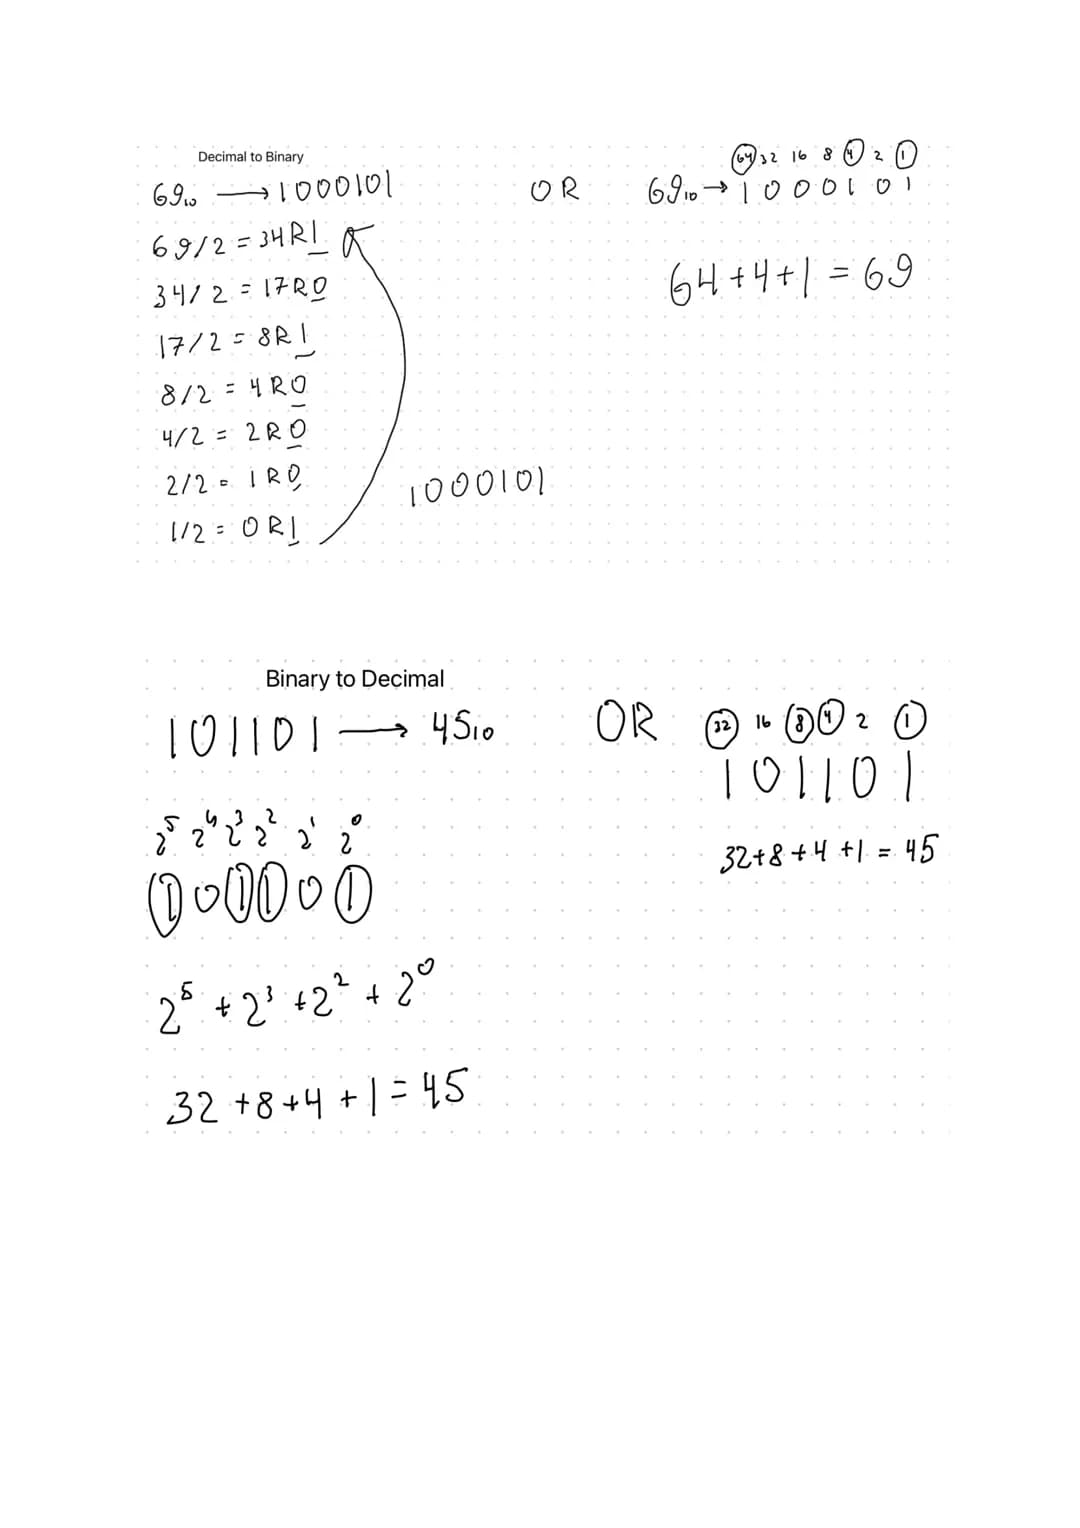 Decimal to Binary
69₁₀ → 1000101
69/2 = 34R1
34/2 = 17R0
17/2 = 8R1
8/2 = 4R0
4/2 = 2R0
2/2 = 1R0
1/2 = 0R1
1000101
OR
64 32 16 8 4 2 1
69₁₀ → 1 0 0 0 1 0 1
64+4+1 = 69
Binary to Decimal
101101 → 45₁₀
2⁵ 2⁴ 2³ 2² 2¹ 2⁰
1 0 1 1 0 1
2⁵ + 2³ + 2² + 2⁰
32 +8+4 +1 = 45
OR
32 16 8 4 2 1
1 0 1 1 0 1
32+8+4+1 = 45